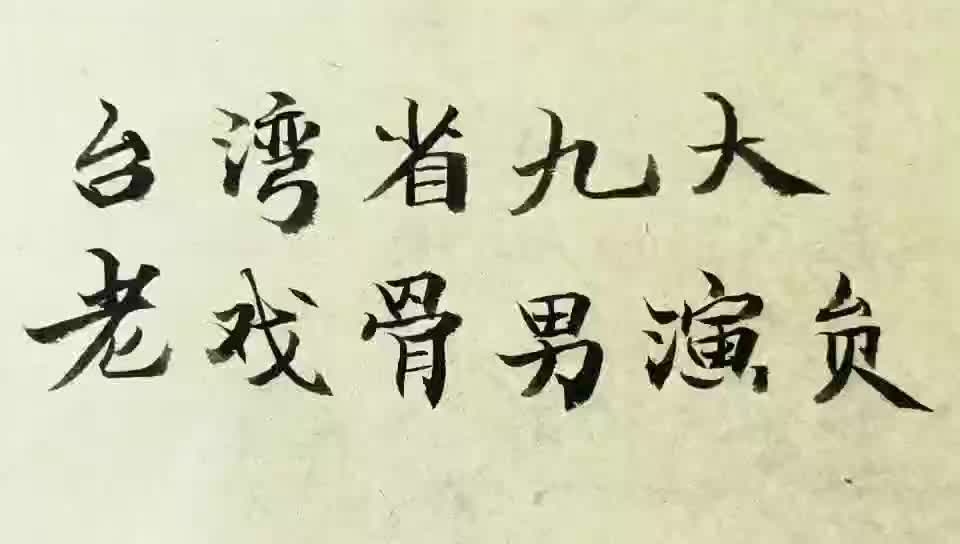 台湾省九大
老戏骨男演员